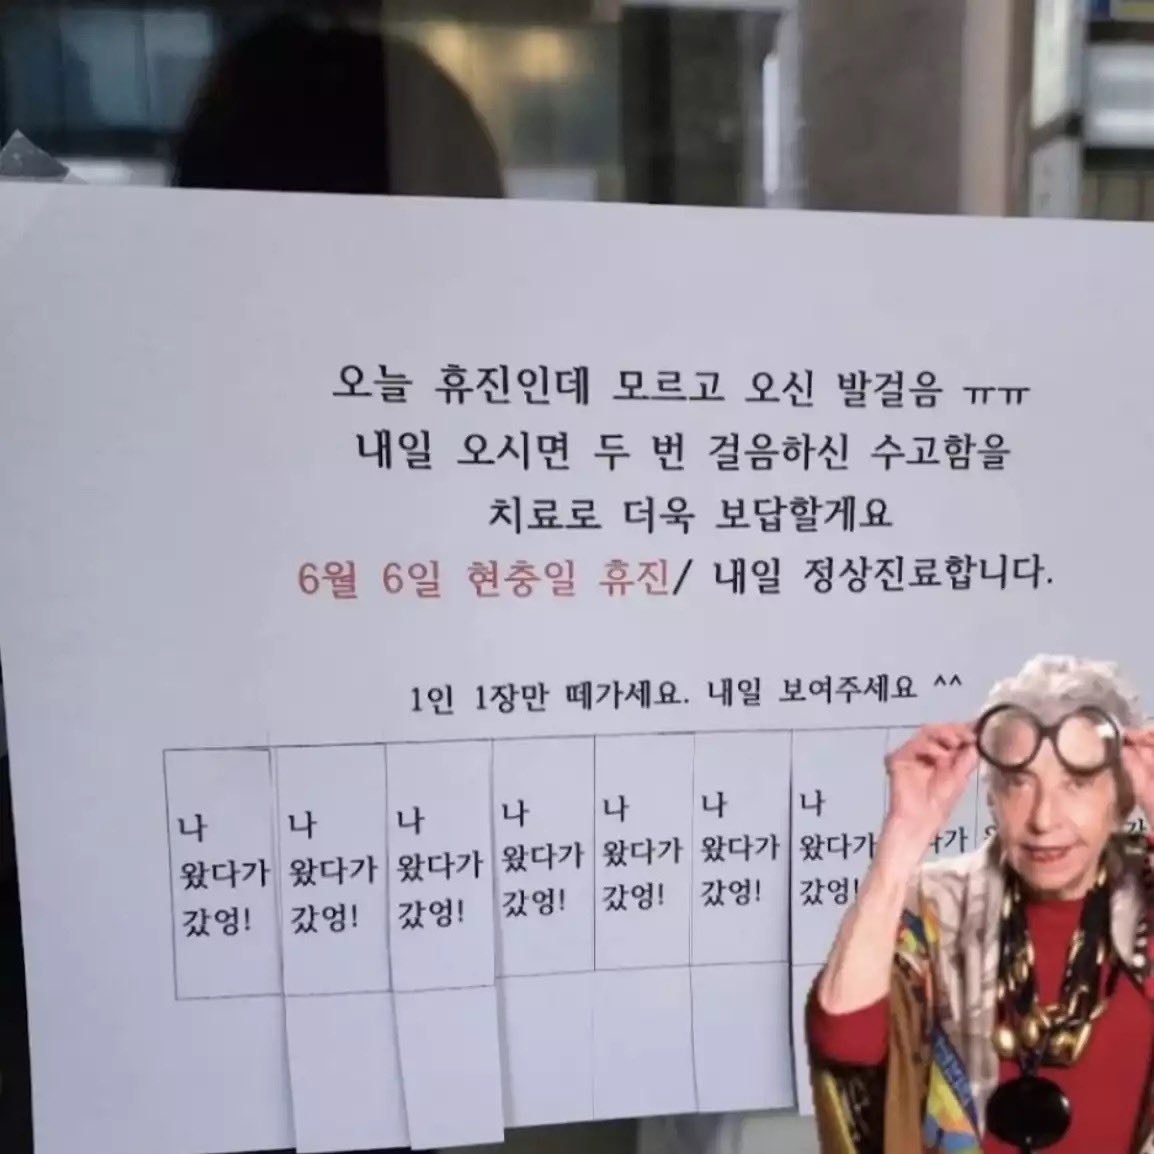 오늘 휴진인데 모르고 오신 발걸음 ㅠㅠ
내일 오시면 두 번 걸음하신 수고함을
치료로 더욱 보답할게요
6월 6일 현충일 휴진/ 내일 정상진료합니다.
1인 1장만 떼가세요. 내일 보여주세요 ^^
나
왔다가
갔엉!
나
왔다가
갔엉!
나
왔다가
갔엉!
나
왔다가
갔엉!
나
왔다가
갔엉!
나
왔다가
갔엉!
나
왔다가
갔엉!